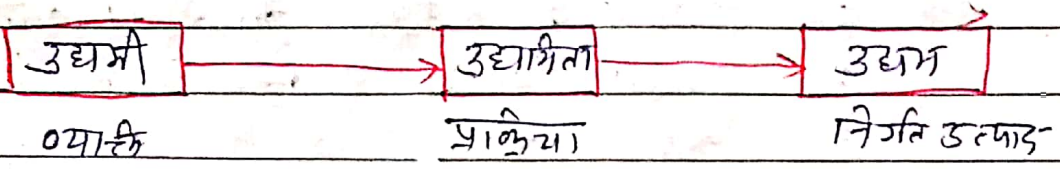 उद्यमी उद्यमिता उद्यम
व्यक्ति प्रक्रिया निर्गत उत्पाद